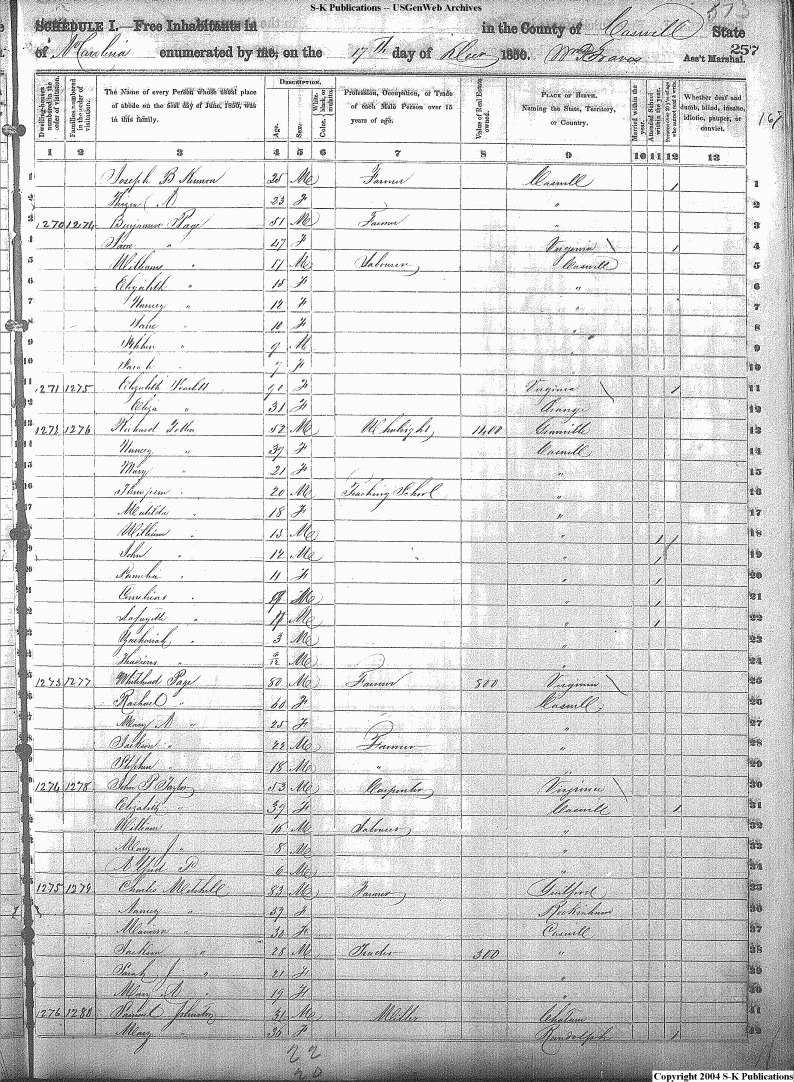 S-K Publications -- USGenWeb Archives
513
SCHEDULE I.—Free Inhabitants in in the County of Caswell State
of N. Carolina enumerated by me, on the 17th day of 1850. Ass't Marshal.
257
167
Dwelling-houses numbered in the order of visitation.
Families numbered in the order of visitation.
The Name of every Person whose usual place of abode on the first day of June, 1850, was in this family.
Description.
Age.
Sex.
Color, White, black, or mulatto.
Profession, Occupation, or Trade of each Male Person over 15 years of age.
Value of Real Estate owned.
Place of Birth. Naming the State, Territory, or Country.
Married within the year.
Attended School within the year.
Persons over 20 y'rs of age who cannot read & write.
Whether deaf and dumb, blind, insane, idiotic, pauper, or convict.
1 2 3 4 5 6 7 8 9 10 11 12 13
1 Joseph B 25 M Farmer Caswell 1 1
2 A 23 F " 2
3 1270 1274 Benjamin Page 51 M Farmer " 3
4 Jane " 47 F Virginia \ 1 4
5 Williams " 17 M Labourer Caswell 5
6 Elizabeth " 15 F " 6
7 Nancy " 12 F " 7
8 Jane " 10 F " 8
9 Stephen " 9 M " 9
10 Sarah " 7 F " 10
11 1271 1275 Elizabeth 90 F Virginia \ 1 11
12 Eliza " 31 F Orange 12
13 1272 1276 Richard 52 M 1400 Granville 13
14 Nancy " 39 F Caswell 14
15 Mary " 21 F " 15
16 Thompson " 20 M Teaching School " 16
17 Matilda " 18 F " 17
18 William " 15 M " 1 18
19 John " 12 M " 1 19
20 Pamelia " 11 F " 1 20
21 M " 1 21
22 Lafayette " M " 1 22
23 Zachariah " 3 M " 23
24 M " 24
25 1273 1277 Whitehead Page 80 M Farmer 800 Virginia \ 25
26 Rachael " 60 F Caswell 26
27 Mary A " 25 F " 27
28 Jackson " 22 M Farmer " 28
29 Stephen " 18 M " " 29
30 1274 1278 John P Taylor 53 M Carpenter Virginia \ 30
31 Elizabeth " 39 F Caswell 1 31
32 William 16 M Labourer " 32
33 Mary J " 8 M " 33
34 Alfred P 6 M " 34
35 1275 1279 Charles Mitchell 83 M Farmer Guilford 35
36 Nancy " 59 F Rockingham 36
37 " 30 F Caswell 37
38 Jackson " 28 M 300 " 38
39 Sarah J " 21 F " 39
40 Mary A " 19 F "
41 1276 1280 Samuel Johnston 31 M Miller Chatam
42 Mary " 35 F Randolph 1
22
20
Copyright 2004 S-K Publications